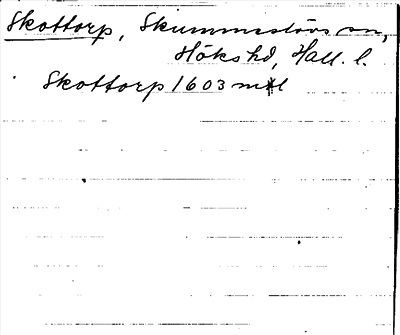 Skottorp, Skummeslövs sn,
Höks hd, Hall. l.
Skottorp 1603 mtl